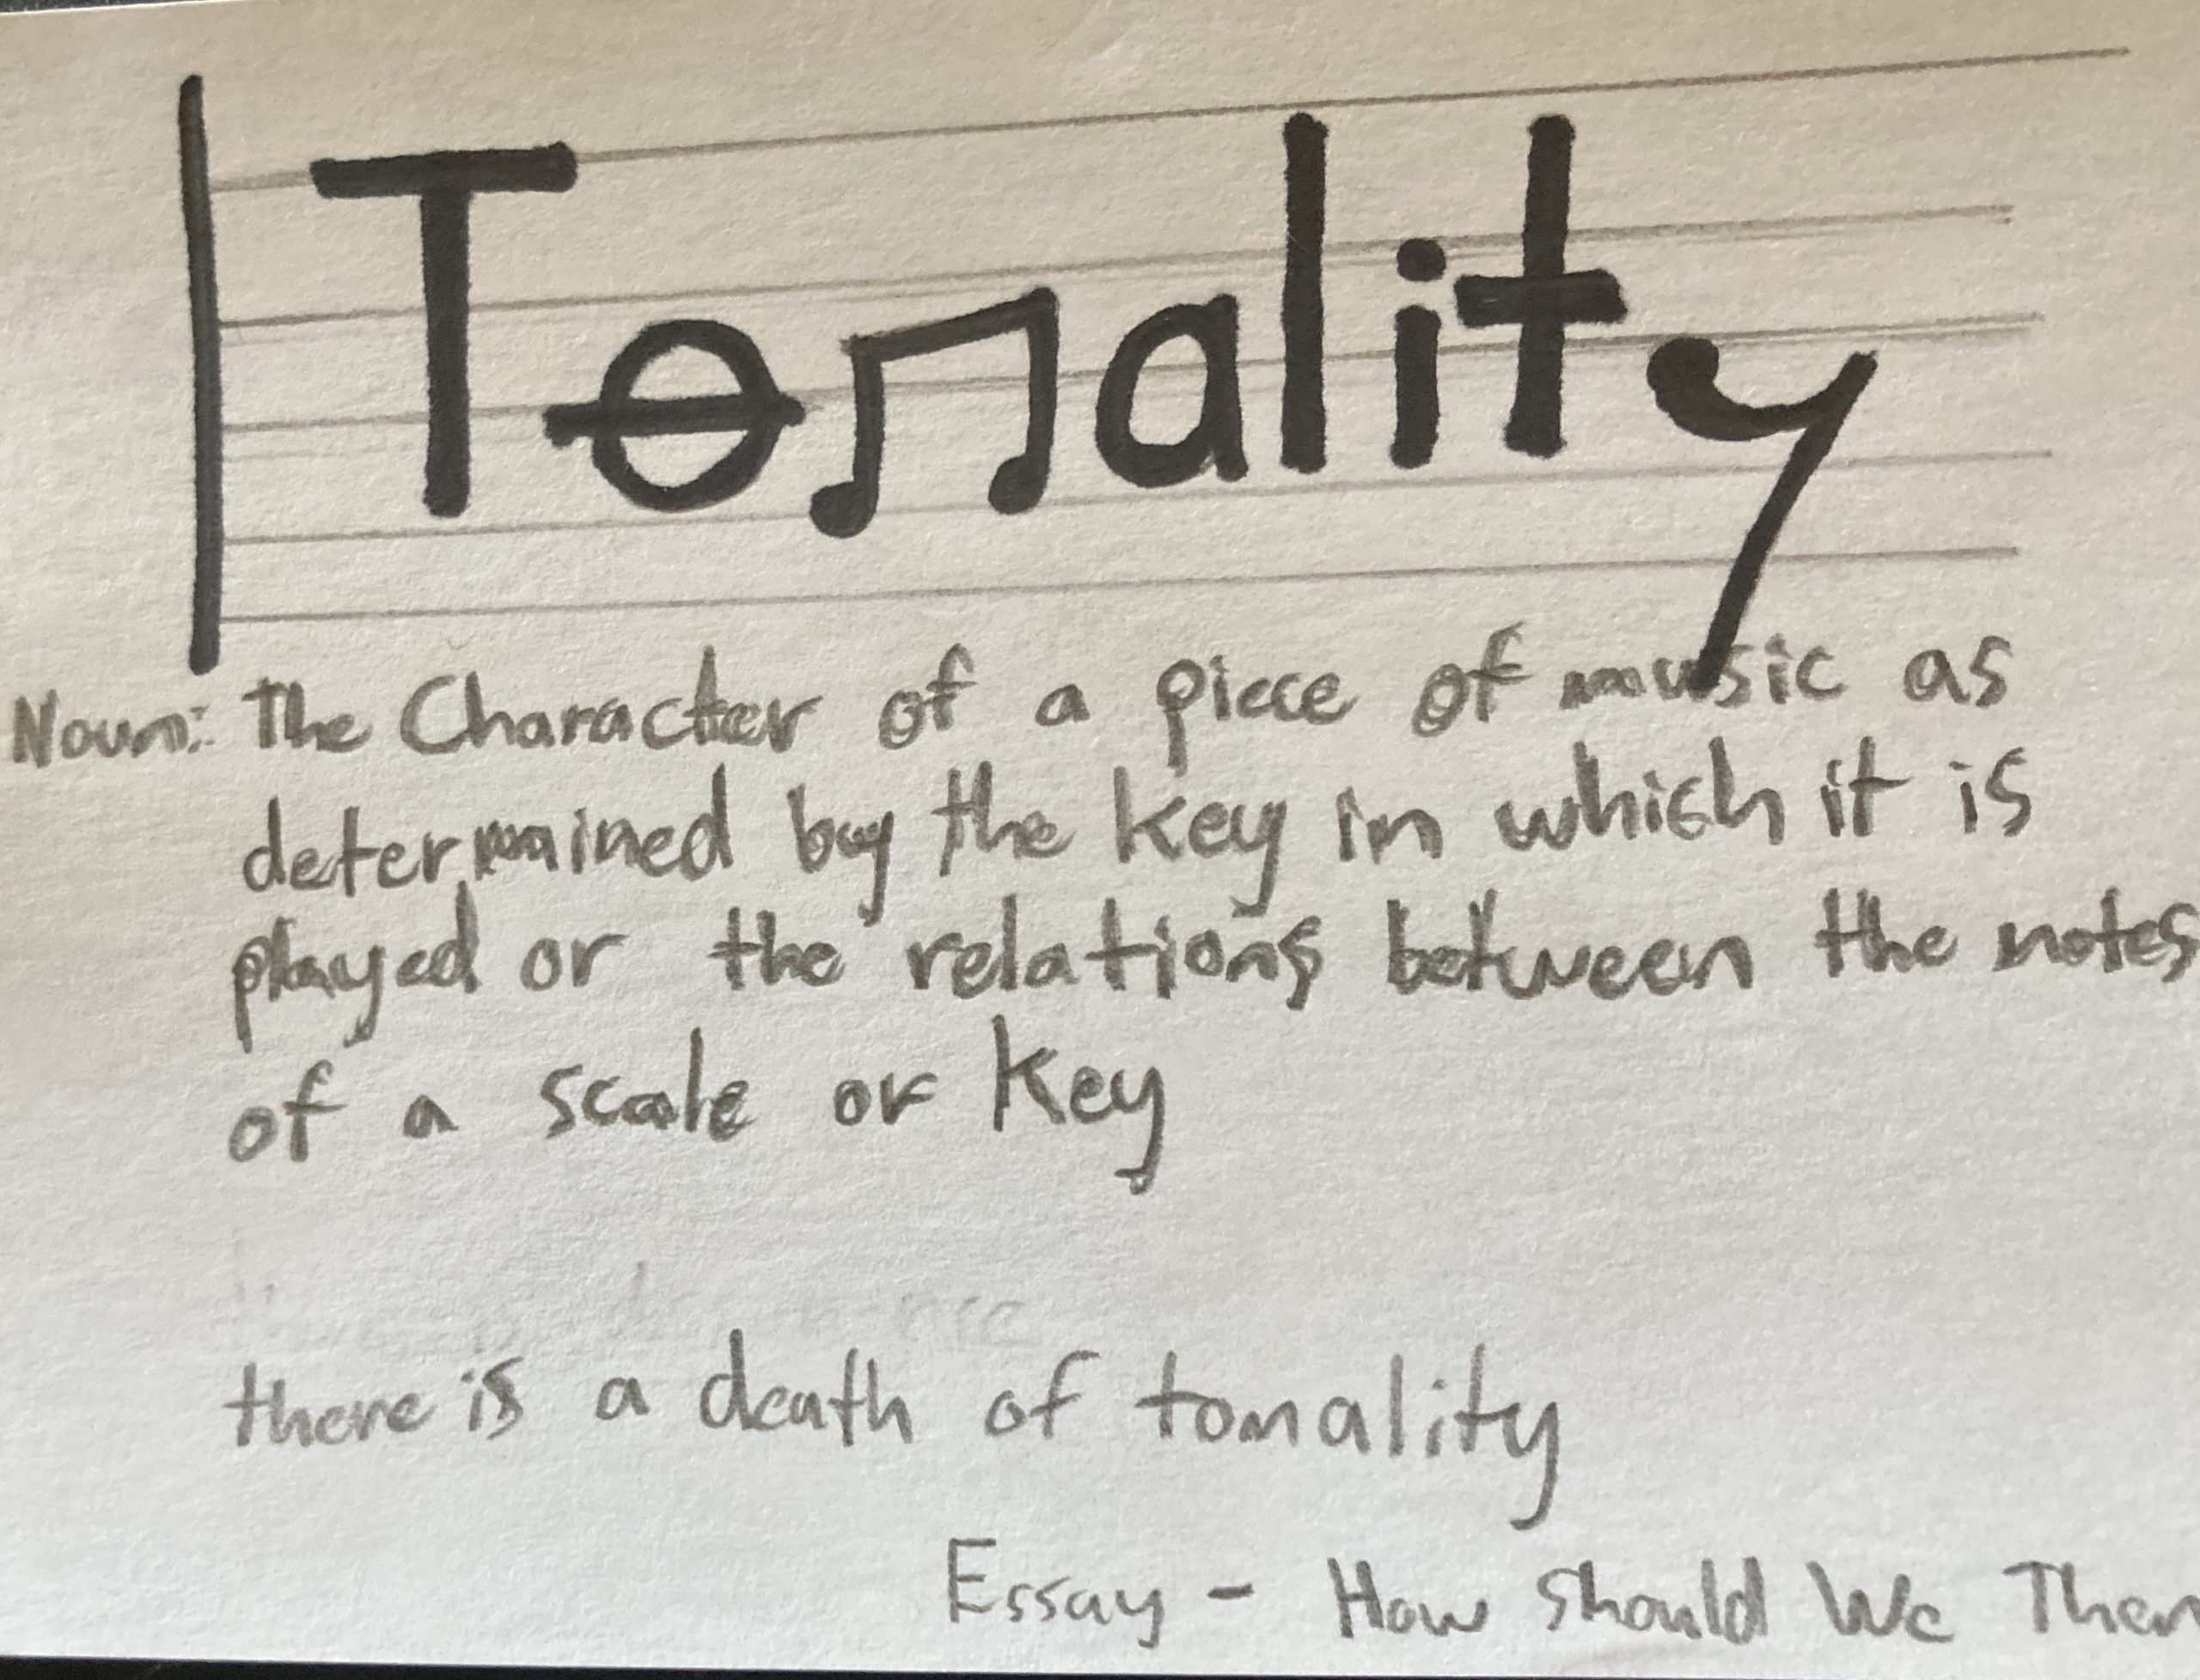 Tonality
Noun: the Character of a piece of music as
determined by the key in which it is
played or the relations between the notes
of a scale or key
there is a death of tonality
Essay - How Should We Then